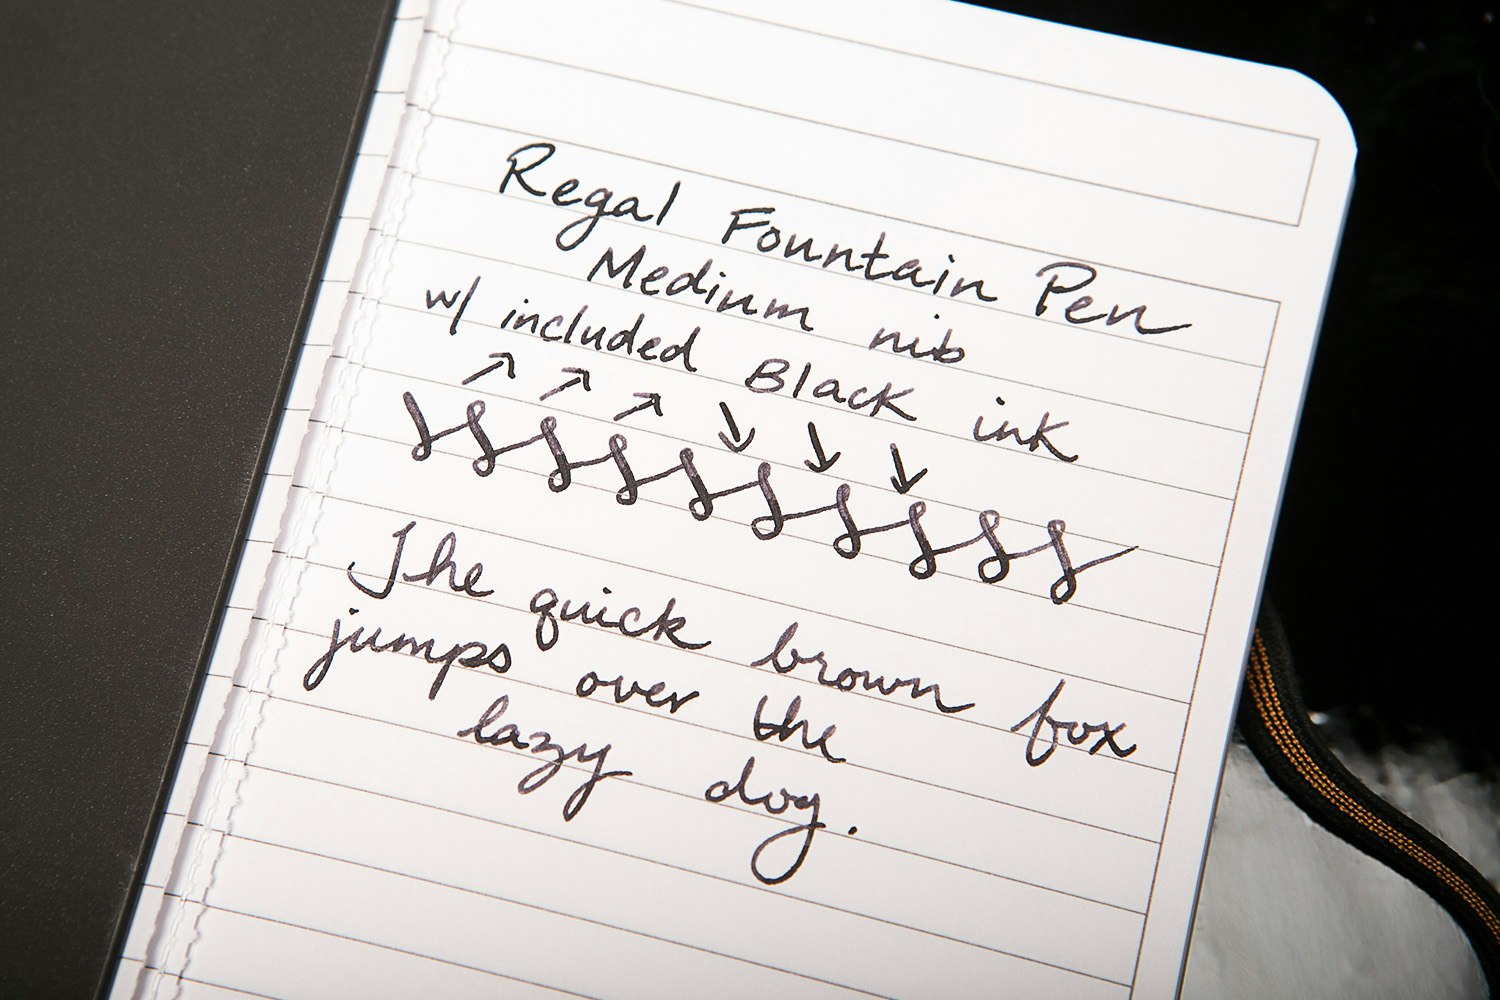 Regal Fountain Pen
Medium nib
w/ included Black ink
↗ ↗ ↗ ↘ ↘ ↘
The quick brown fox
jumps over the
lazy dog.